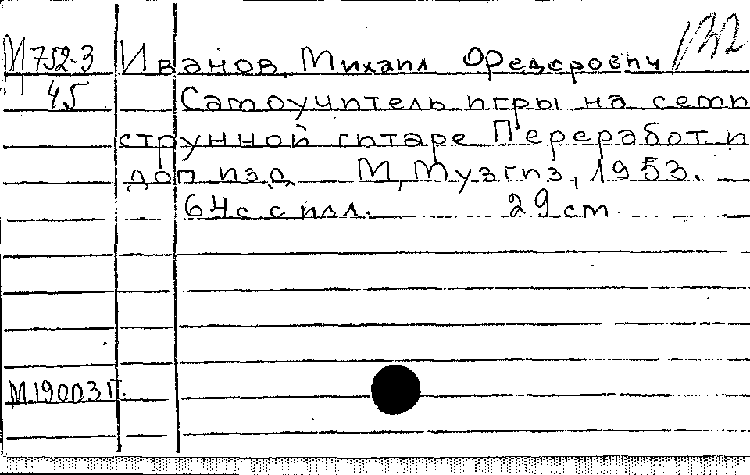 М 752-3 Иванов, Михаил Федорович 132
45 Самоучитель игры на семи
струнной гитаре Переработ и
доп изд М, Музгиз, 1953.
64 с с илл. 29 cm
М 19003 Г.